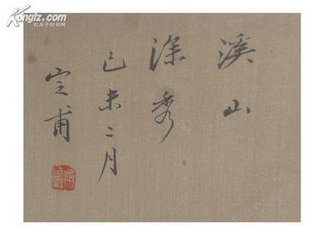 溪山
深秀
己未二月
定甫
Kongfz.com
孔夫子旧书网